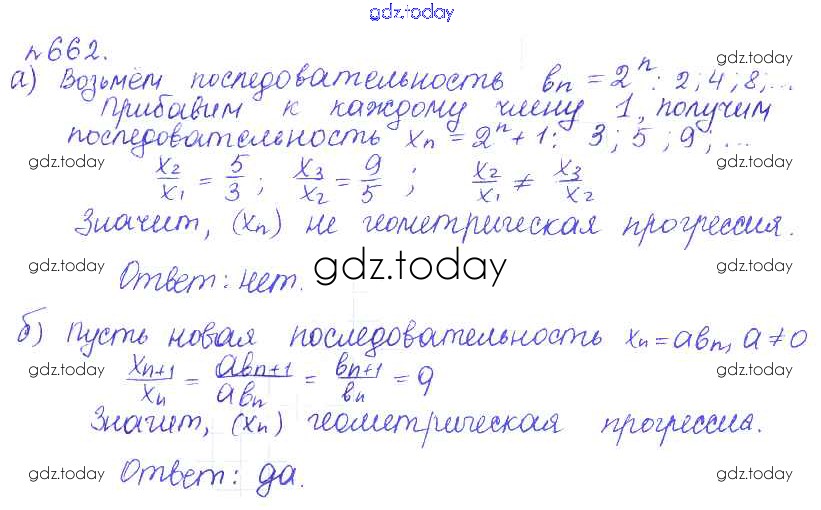 gdz.today
n 662.
gdz.today
а) Возьмём последовательность bn = 2^n: 2; 4; 8; ...
Прибавим к каждому члену 1, получим
последовательность xn = 2^n + 1: 3; 5; 9; ...
gdz.today gdz.today
x2/x1 = 5/3; x3/x2 = 9/5; x2/x1 ≠ x3/x2
Значит, (xn) не геометрическая прогрессия.
gdz.today gdz.today gdz.today
Ответ: нет.
б) Пусть новая последовательность xn = abn, a ≠ 0
gdz.today gdz.today
xn+1/xn = abn+1/abn = bn+1/bn = q
Значит, (xn) геометрическая прогрессия.
gdz.today gdz.today
Ответ: да.